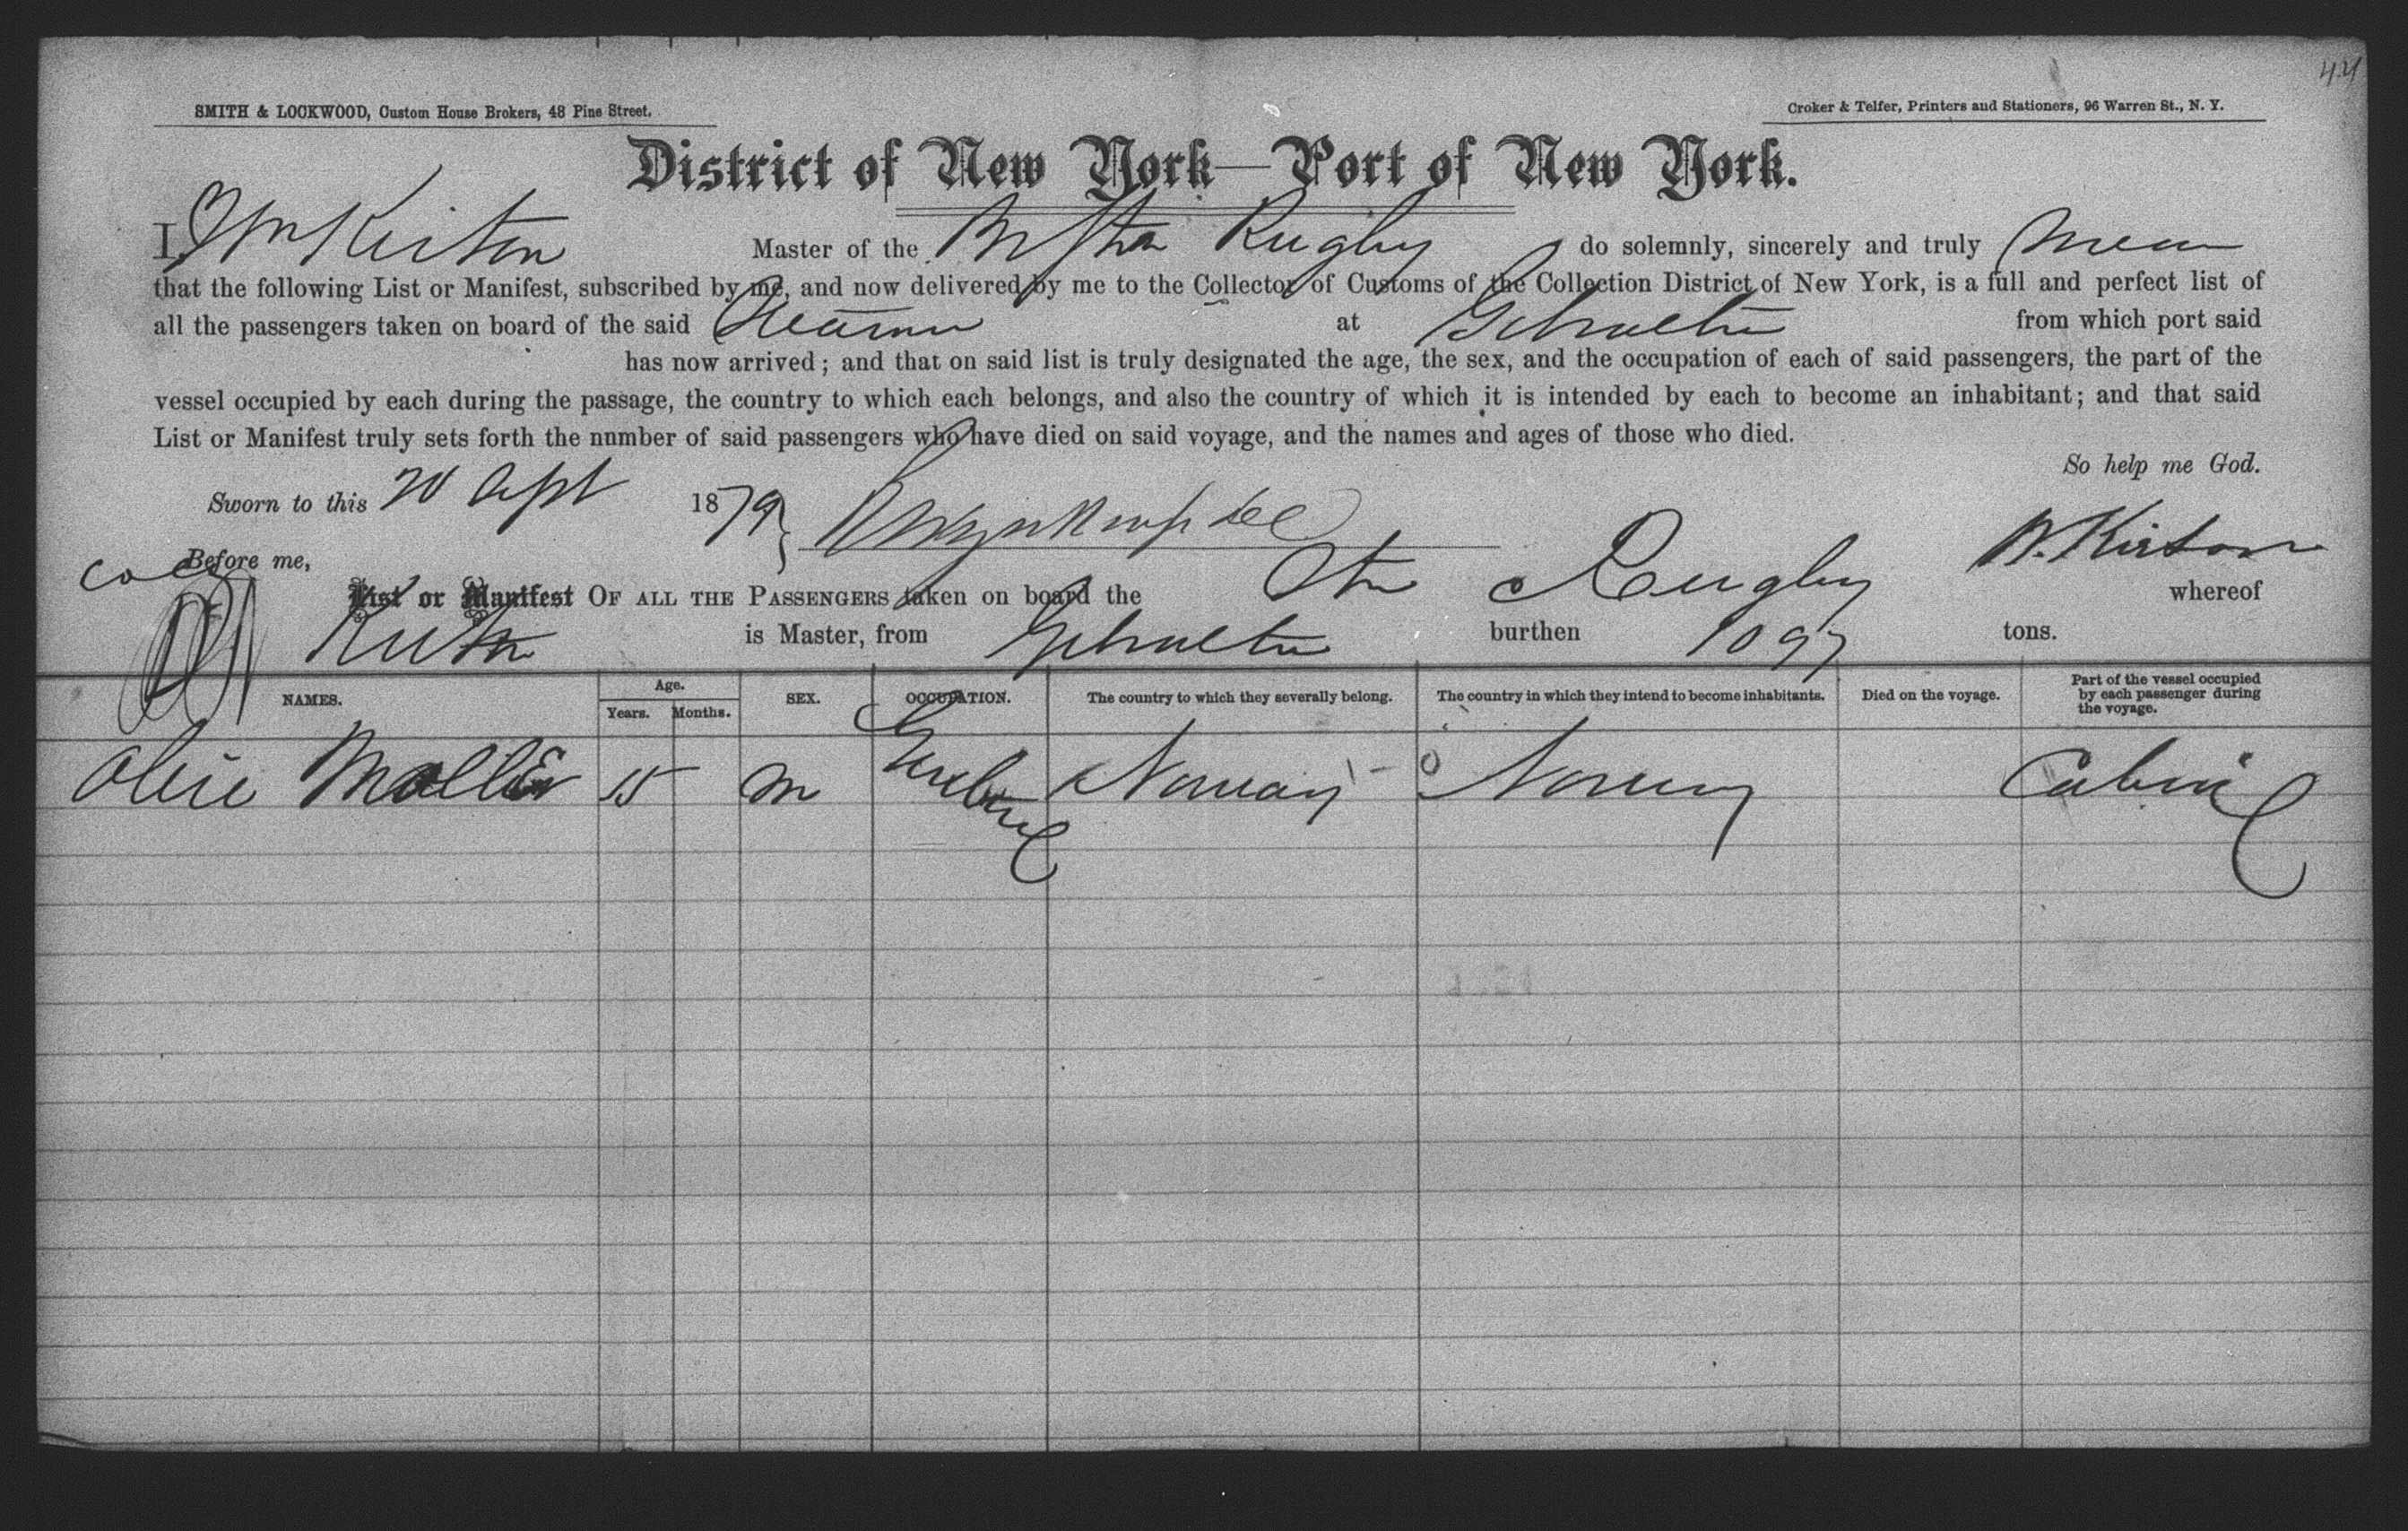 44
SMITH & LOCKWOOD, Custom House Brokers, 48 Pine Street.
Croker & Telfer, Printers and Stationers, 96 Warren St., N. Y.
District of New York—Port of New York.
I, Wm Kirton Master of the Br Str Rugby do solemnly, sincerely and truly swear
that the following List or Manifest, subscribed by me, and now delivered by me to the Collector of Customs of the Collection District of New York, is a full and perfect list of
all the passengers taken on board of the said Steamer at Gibraltar from which port said
has now arrived; and that on said list is truly designated the age, the sex, and the occupation of each of said passengers, the part of the
vessel occupied by each during the passage, the country to which each belongs, and also the country of which it is intended by each to become an inhabitant; and that said
List or Manifest truly sets forth the nnmber of said passengers who have died on said voyage, and the names and ages of those who died.
So help me God.
Sworn to this Apl 1879
W. Kirton
Before me,
List or Manifest OF ALL THE PASSENGERS taken on board the Str Rugby whereof
Kirton is Master, from Gibraltar burthen 1097 tons.
NAMES. Age. Years. Months. SEX. OCCUPATION. The country to which they severally belong. The country in which they intend to become inhabitants. Died on the voyage. Part of the vessel occupied by each passenger during the voyage.
Moller 15 m Norway Norway Cabin